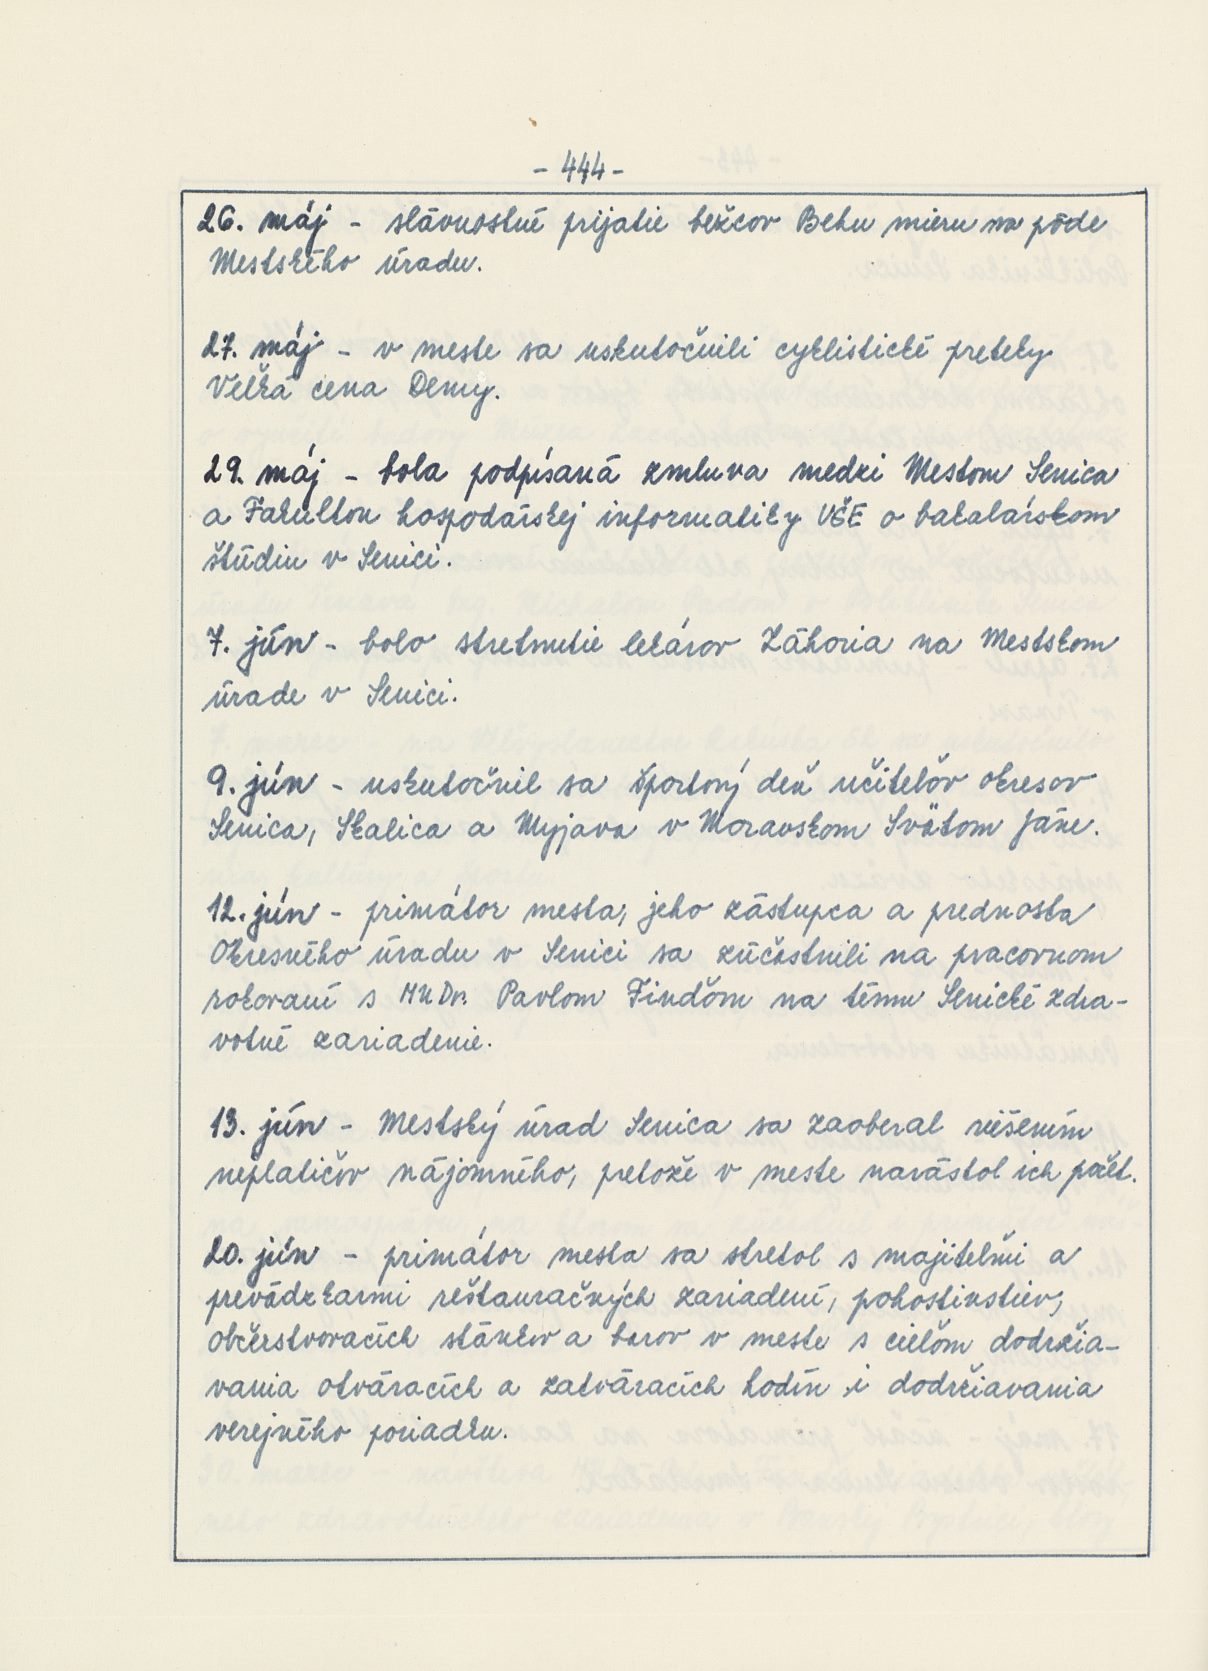 - 444 -
26. máj - slávnostné prijatie bežcov Behu mieru na pôde
Mestského úradu.
27. máj - v meste sa uskutočnili cyklistické preteky
Veľká cena Demy.
29. máj - bola podpísaná zmluva medzi Mestom Senica
a Fakultou hospodárskej informatiky VŠE o bakalárskom
štúdiu v Senici.
7. jún - bolo stretnutie lekárov Záhoria na Mestskom
úrade v Senici.
9. jún - uskutočnil sa športový deň učiteľov okresov
Senica, Skalica a Myjava v Moravskom Svätom Jáne.
12. jún - primátor mesta, jeho zástupca a prednosta
Okresného úradu v Senici sa zúčastnili na pracovnom
rokovaní s MUDr. Pavlom Finďom na tému Senické zdra-
votné zariadenie.
13. jún - Mestský úrad Senica sa zaoberal riešením
neplatičov nájomného, pretože v meste narástol ich počet.
20. jún - primátor mesta sa stretol s majiteľmi a
prevádzkarmi reštauračných zariadení, pohostinstiev,
občerstvovacích stánkov a barov v meste s cieľom dodržia-
vania otváracích a zatváracích hodín i dodržiavania
verejného poriadku.